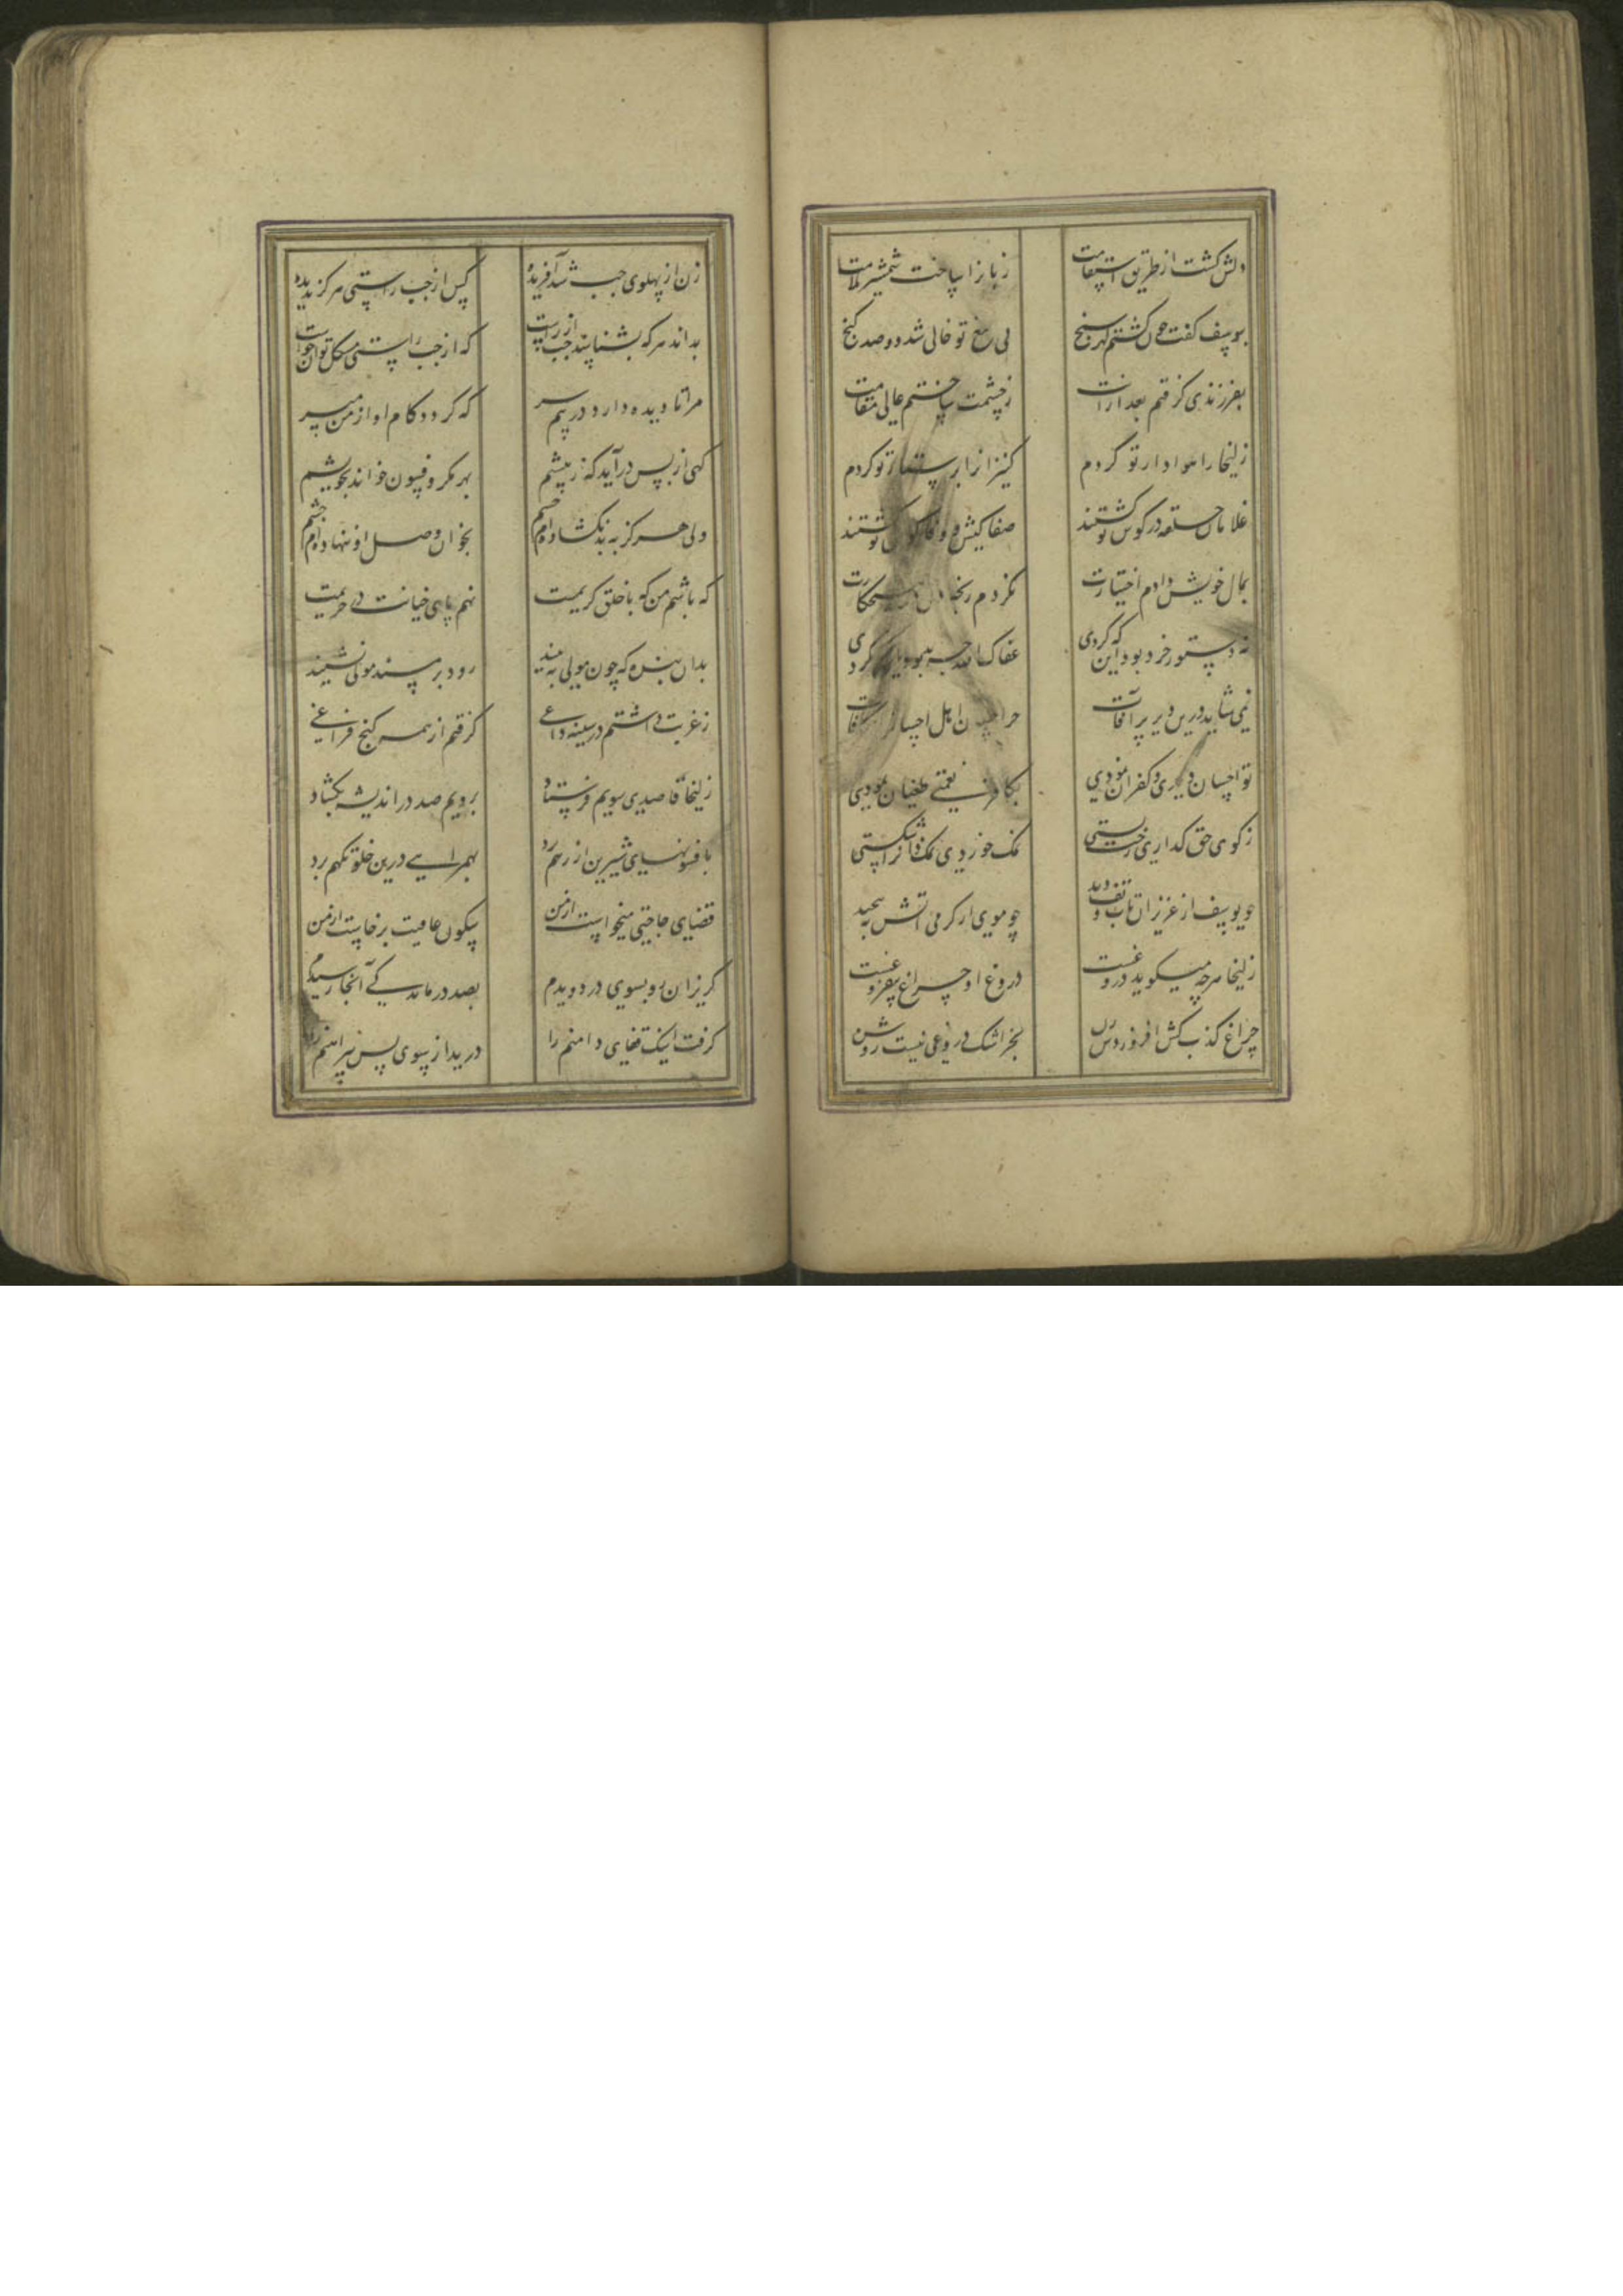 دلش گشت از طریق استقامت زبانرا ساخت شمشیر ملامت
بیوسف گفت چون گشتم گهر سنج پی بیع تو خالی شد دو صد گنج
بفرزندی گرفتم بعد ازانت زحشمت ساختم عالی مقامت
زلیخا را هوادار تو کردم کنیزانرا پرستار تو کردم
غلامان حلقه در گوش تو گشتند صفا کیش و وفا کوش تو گشتند
بمال خویش دادم اختیارت نکردم رنجه دل در هیچ کارت
نه دستور خرد بود این که کردی عفاک الله چه بد بود این که کردی
نمی شاید درین دیر پر آفات جز احسان اهل احسانرا مکافات
تو احسان دیدی و کفران نمودی بکافر نعمتی طغیان نمودی
ز کوی حق گذاری رخت بستی نمک خوردی نمکدانرا شکستی
چو یوسف از عزیز آن تاب و تف دید چو موی از گرمی آتش به پیچید
زلیخا هر چه میگوید دروغست دروغ او چراغ بیفروغست
زن از پهلوی چپ شد آفریده کس از چپ راستی هرگز ندیده
بداند هر که بشناسد چپ از راست که از چپ راستی مشکل توان خواست
مرا تا دیده دارد در پیم سر که گردد کام او از من میسر
گهی از پس در آید گه ز پیشم بهر مکر و فسون خواند بخویشم
ولی هرگز به بد نگشاده ام چشم بخوان وصل او ننهاده ام چشم
که باشم من که با خلق کریمت نهم پای خیانت در حریمت
بدان بنده که چون مولی نه بیند رود بر مسند مولی نشیند
ز غربت داشتم در سینه داغی گرفتم از همه کنج فراغی
زلیخا قاصدی سویم فرستاد برویم صد در اندیشه بگشاد
بافسونهای شیرین از رهم برد بهمراهی درین خلوتگهم برد
قضای حاجتی میخواست از من سکون عافیت برخاست از من
گریزان رو بسوی در دویدم بصد درماندگی آنجا رسیدم
گرفت اینک قفای دامنم را درید از سوی پس پیراهنم را